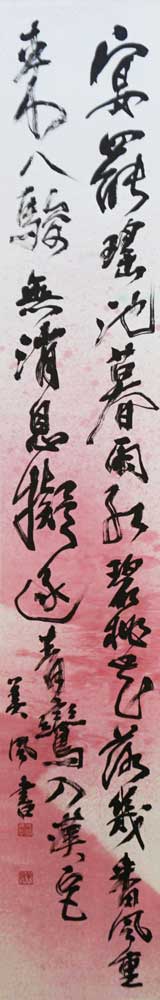 宴罷瑤池暮雨紅碧桃花落幾春風重
來不見八駿無消息擬逐青鸞入漢宮
美風書